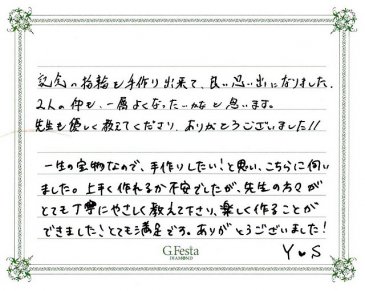 記念の指輪も手作り出来て、良い思い出になりました。
2人の仲も、一層よくなったかなと思います。
先生も優しく教えてくださり、ありがとうございました!!
一生の宝物なので、手作りしたい!と思い、こちらに伺い
ました。上手く作れるか不安でしたが、先生の方々が
とても丁寧にやさしく教えて下さり、楽しく作ることが
できました!とても満足です。ありがとうございました!
G.Festa
DIAMOND
Y♥S